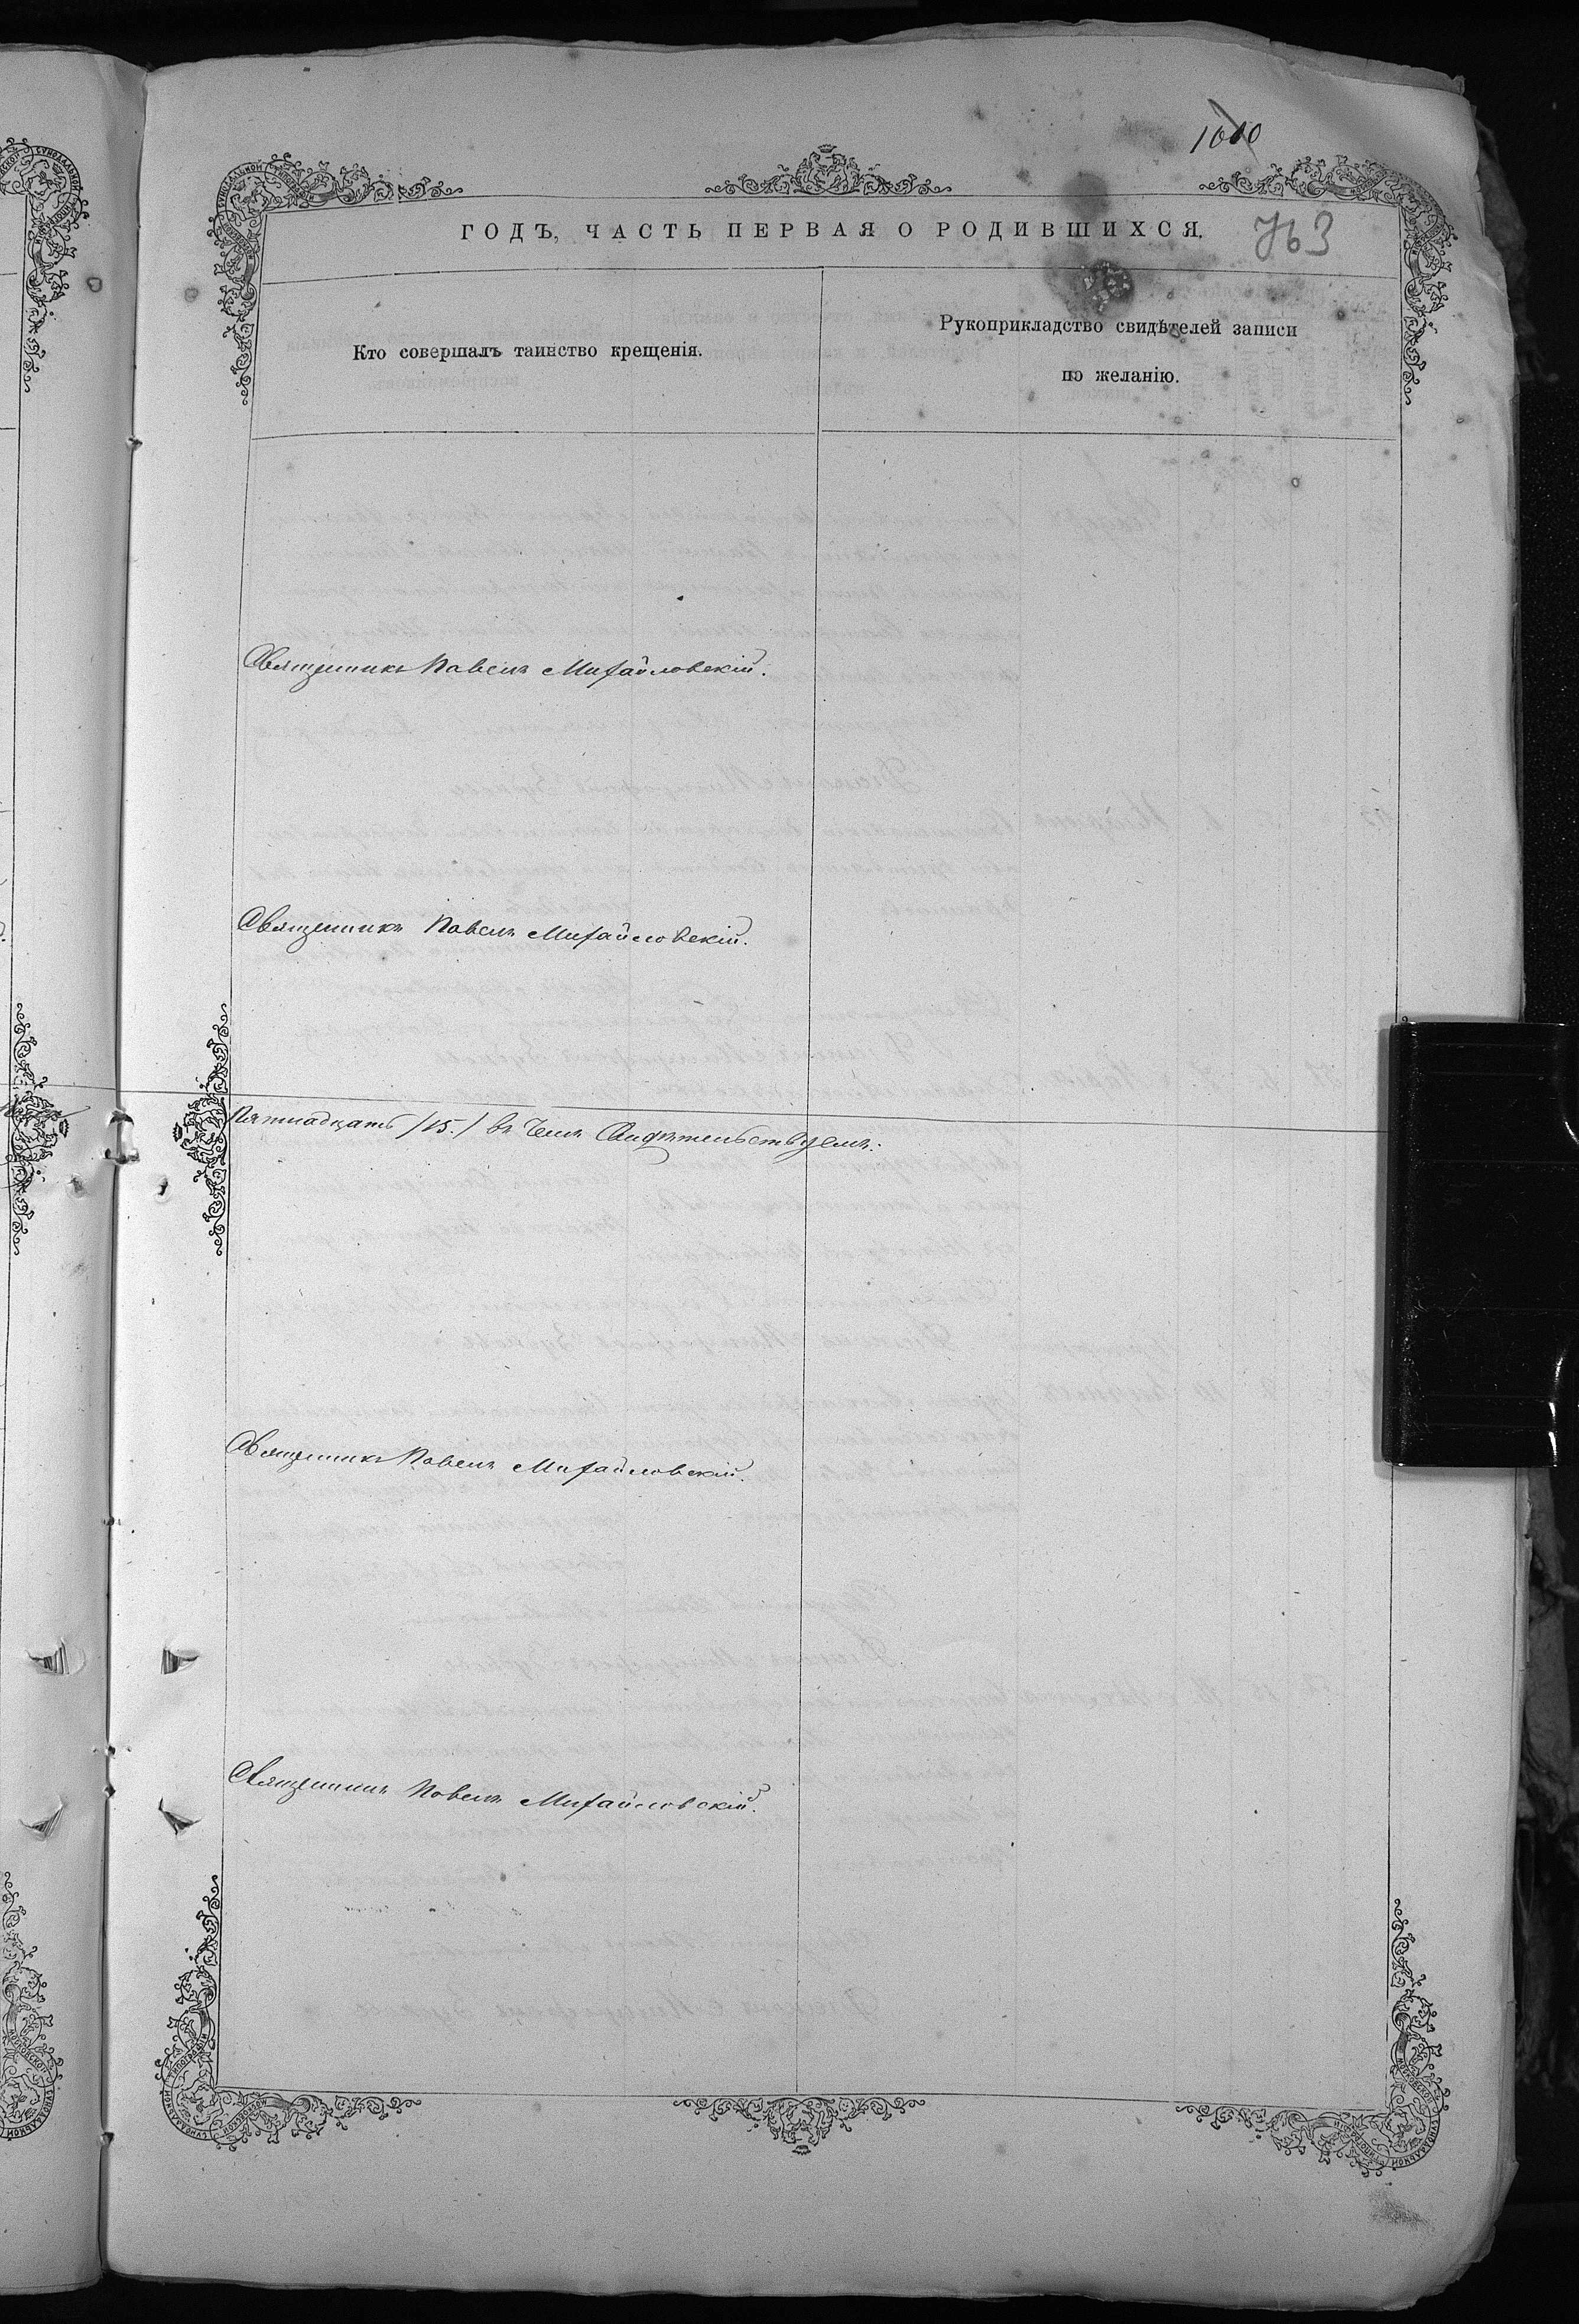 1010
ГОДЪ, ЧАСТЬ ПЕРВАЯ О РОДИВШИХСЯ.
763
Кто совершалъ таинство крещенія.
Рукоприкладство свидѣтелей записи
по желанію.
Священникъ Павелъ Михайловскій.
Священникъ Павелъ Михайловскій.
Пятнадцать /15./ въ чемъ Свидѣтельствуемъ:
Священникъ Павелъ Михайловскій.
Священникъ Павелъ Михайловскій.